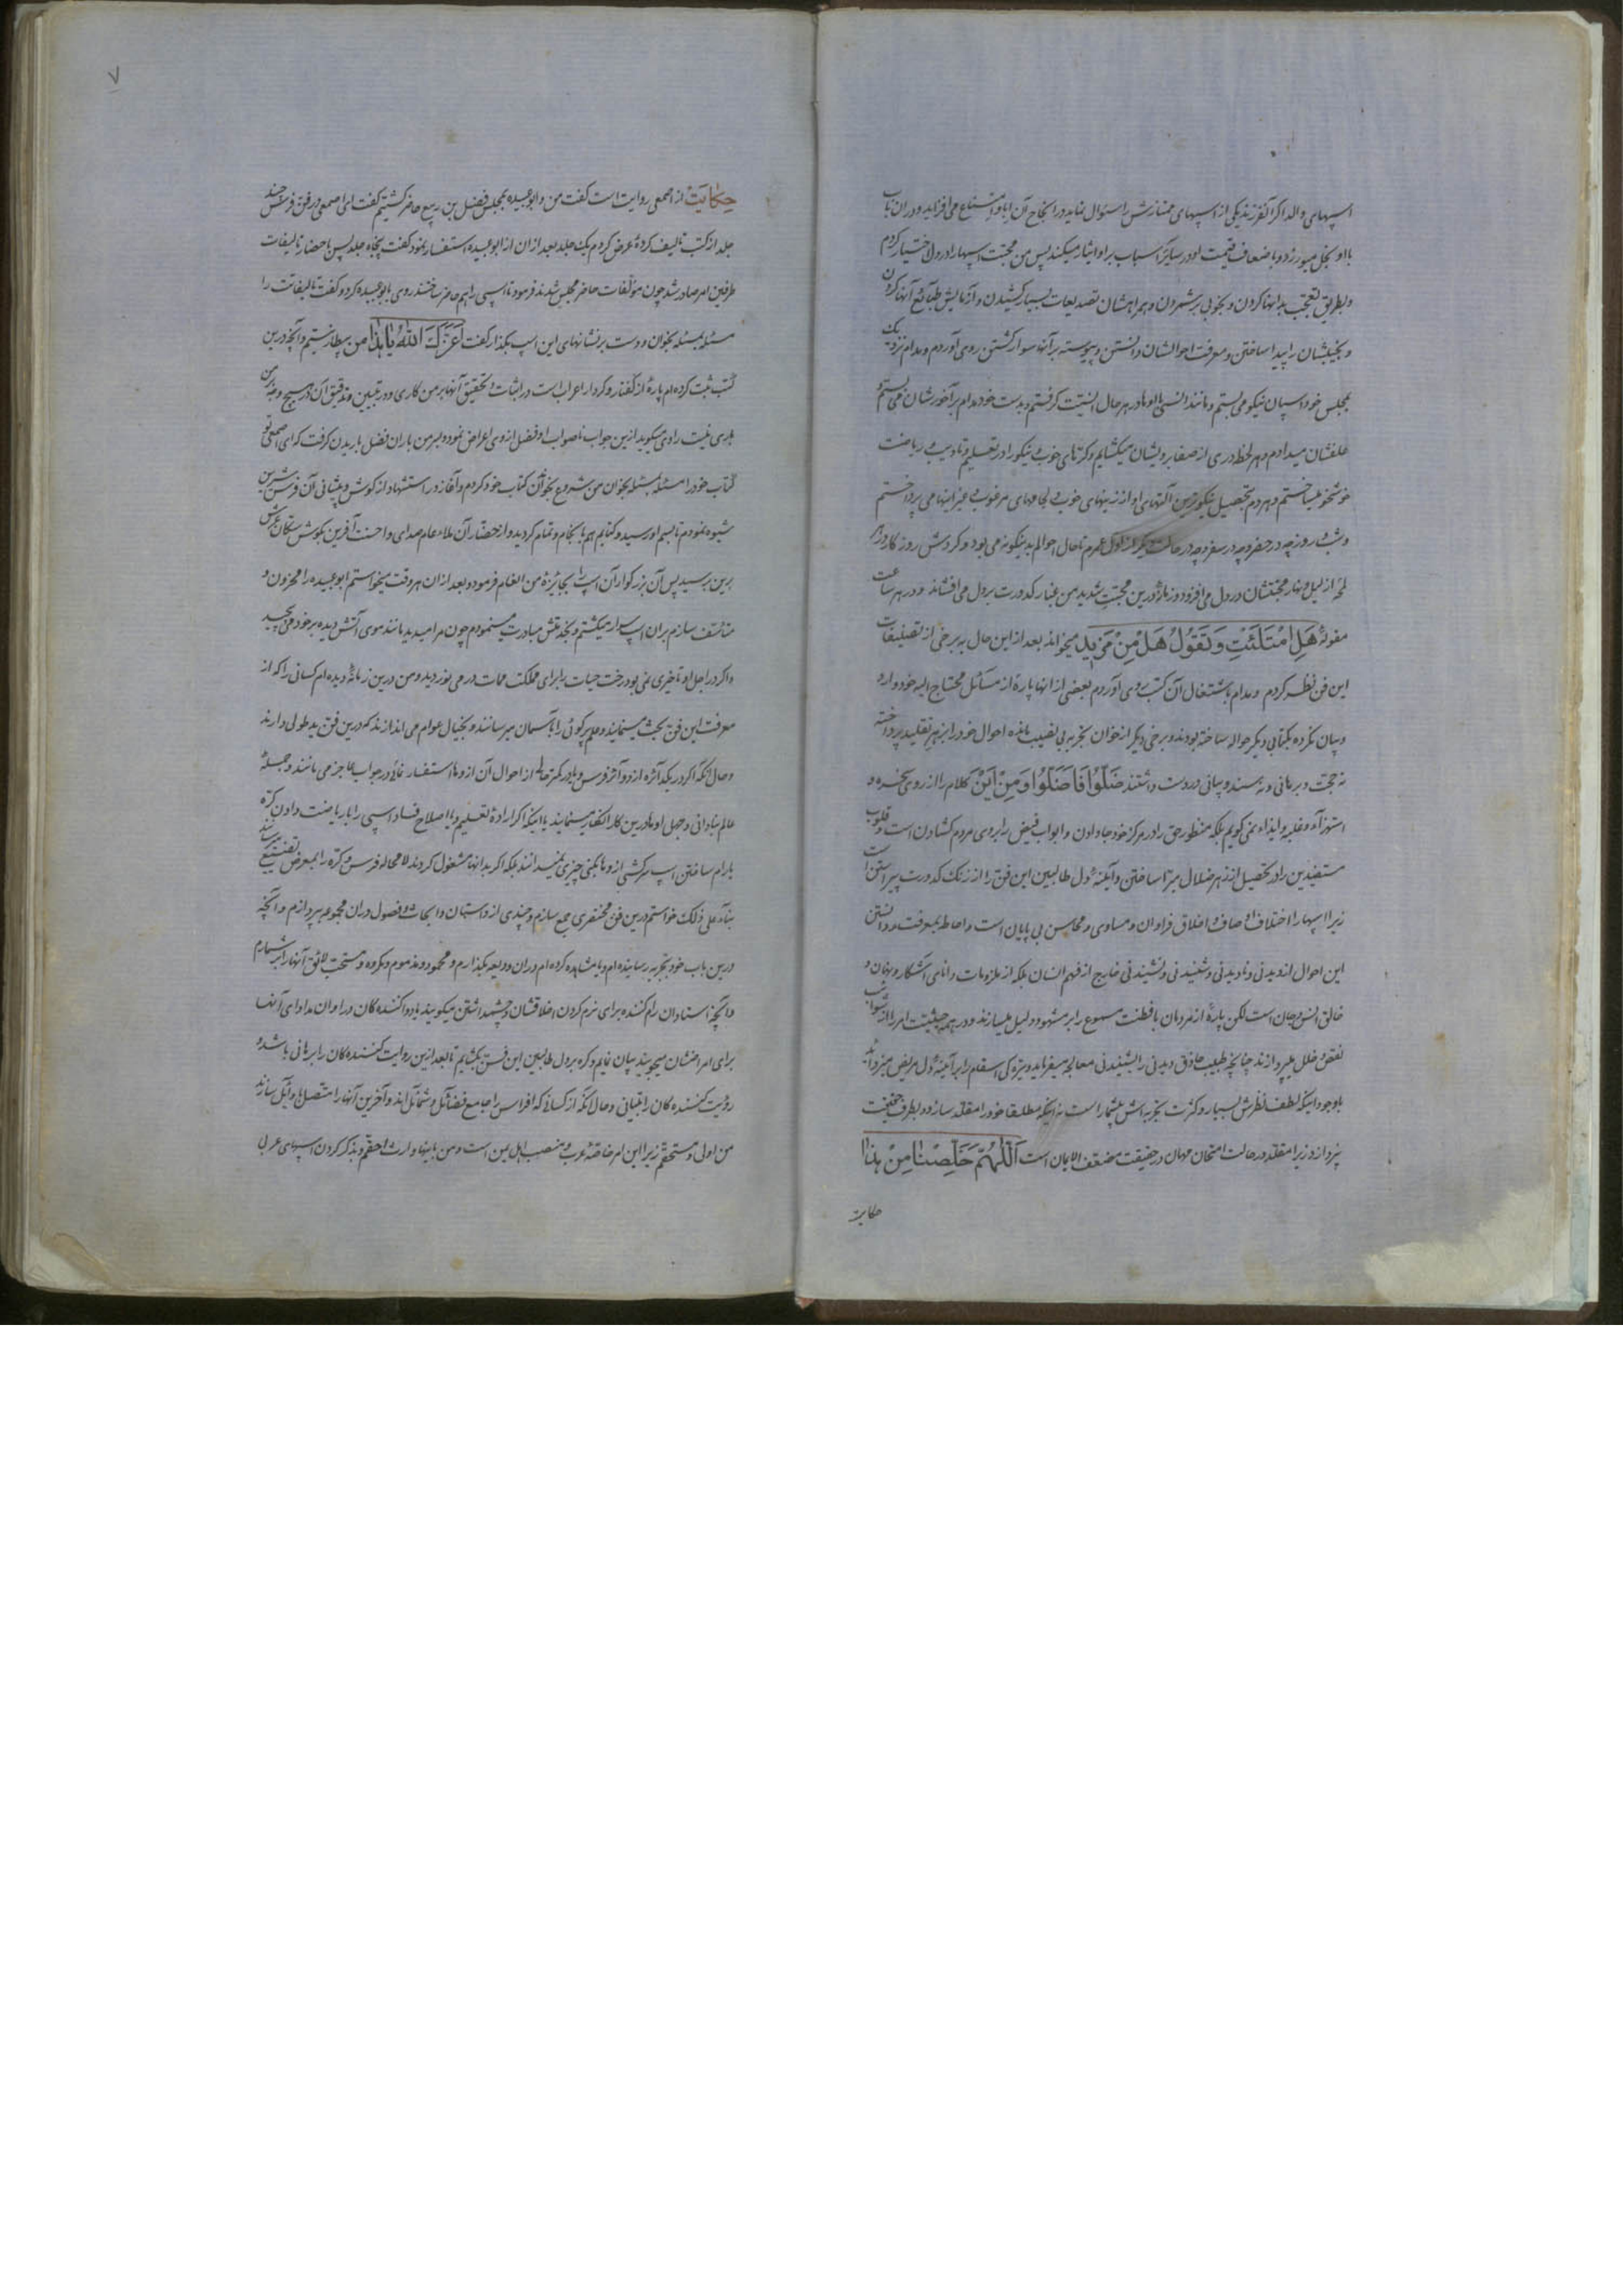 اسپهای واله اگر آنفرزند یکی از اسپهای ممتازش را سئوال نماید در انجاح آن ابا و امتناع می افزاید و در ان باب
با او بخل میورزد و باضعاف قیمت او در سایر اسباب بر او ایثار میکند پس من محبت اسپها را در دل اختیار کردم
و بطریق تعجب بدانها کردن و بخوبی بر شمردن و همراهشان تصدیعات بسیار کشیدن و آزمایش طبائع آنها کردن
و بخیلشان را پیدا ساختن و معرفت احوالشان دانستن و پیوسته بر آنها سوار گشتن روی آوردم و مدام نزدیک
بمجلس خود اسپان نیکو می بستم و مانند انسی با اوها در هر حال انسیت گرفتم و بدست خود مدام بر آخورشان می بستم و
علفشان میدادم و هر لحظه دری از صفا برویشان میکشایم و کرّهای خوب و نیکو را در تعلیم و تادیب و ریاضت
خوشخو میساختم و هر دم بتحصیل نیکوترین آلتهای او از زینهای خوب و لجامهای مرغوب و غیر اینها می پرداختم
و شب و روز چه در حضر و چه در سفر و چه در حالت دیگر از اوّل عمرم تا حال احوالم بدینگونه می بود و گردش روزگار در
لمحهٔ از لیل و نهار محبتشان در دل می افزود و زمانه درین محبّت شدید من غبار کدورت بر دل می افشاند و در هر ساعت
مقولهٔ هَلِ امْتَلَئَتِ وَتَقُولُ هَلْ مِنْ مَزِیدٍ میخواند بعد از این حال به برخی از تصنیفات
این فن نظر کردم و مدام باشتغال آن کتب روی آوردم بعضی از انها پارهٔ از مسائل محتاج الیه خود وارد
و بیان نکرده بکتابی دیگر حواله ساخته بودند و برخی دیگر از خوان تجربه بی نصیب مانده احوال خود را بزیور تقلید پرداخته
نه حجت و برهانی و نه سند و بیانی در دست داشتند ضَلُّوا فَاَضَلُّوا وَمِنْ اَیْنَ کلام را از روی سخره و
استهزاء و غلبه و ایذاء نمی گویم بلکه منظور حق را در مرکز خود جا دادن و ابواب فیض را بروی مردم کشادن است و قلوب
مستفیدین را در تحصیل از زهر ضلال مبرّا ساختن و آیینهٔ دل طالبین این فن را از زنگ کدورت پیراستن است
زیرا اسپها را اختلاف اوصاف و اخلاق فراوان و مساوی و محاسن بی پایان است و احاطه بمعرفت و دانستن
این احوال از دیدنی و نادیدنی و شنیدنی و نشنیدنی خارج از فهم انسان بلکه از ملزومات دانای آشکار و نهان و
خالق انس و جان است لکن پارهٔ از مردمان با فطنت مسموع را بر مشهود دلیل میسازند و در همه حیثیت امر را از شوائب
نقص و خلل می پردازند چنانچه طبیب حاذق دیدنی را بشنیدنی معالجه میفرماید و تیزه گی اسقام را بر آیینهٔ دل مریض میزداید
باوجود اینکه لطف نظرش بسیار و کثرت تجربه اش بیشمار است نه اینکه مطلقا خود را مقلّد سازد و بطرف حقیقت
نپردازد زیرا مقلّد در حالت امتحان مهان در حقیقت مضعف الایمان است اَللّهُمَّ خَلِّصْنَا مِنْ هٰذَا
حکایت
۷
حِکایَتْ از اصمعی روایت است گفت من و ابو عبیده بمجلس فضل بن ربیع حاضر گشتیم گفت ای اصمعی در فن فرس چند
جلد از کتب تالیف کردهٔ عرض کردم یک جلد بعد از ان از ابو عبیده استفسار نمود گفت پنجاه جلد پس باحضار تالیفات
طرفین امر صادر شد چون مؤلفات حاضر مجلس شدند فرمود تا اسپی را هم حاضر ساختند روی بابو عبیده کرد و گفت تالیفاتت را
مسئله بمسئله بخوان و دست بر نشانهای این اسپ بگذار گفت اَعَزَّکَ اللّٰهُ یَا هٰذَا من بیطار نیستم و آنچه درین
کتب ثبت کرده ام پارهٔ از گفتار و کردار اعراب است در اثبات و تحقیق آنها بر من کاری و در تبیین و تدقیق آن در هیچ وجه بر من
باری نیست راوی میگوید ازین جواب ناصواب او فضل از وی اعراض نموده و بر من باران فضل باریدن گرفت که ای اصمعی تو
کتاب خود را مسئله بمسئله بخوان من شروع بخواندن کتاب خود کردم و آغاز در استشهاد از گوش و پیشانی آن فرس شیرین
شیوه نمودم تا بسم او رسید و کتابم هم بانجام و تمام گردید و از حضّار آن ملاء عام صدای و احسنت آفرین بگوش سکّان عرش
برین برسید پس آن بزرگوار آن اسپ را بجائیزهٔ من انعام فرمود و بعد از ان هر وقت میخواستم ابو عبیده را محزون و
متأسف سازم بران اسپ سوار میگشتم و بخدمتش مبادرت مینمودم چون مرا میدید مانند موی آتش دیده بر خود می پیچید
و اگر در اجل او تاخیری نمی بود رخت حیات را برای مملکت ممات در می نوردید و من درین زمانه دیده ام کسانی را که از
معرفت این فنّ بحث مینمایند و علم پرگوئی را بآسمان میرسانند و بخیال عوام می اندازند که درین فن ید طولی دارند
و حال آنکه اگر در یک دائره از دوائر فرس و یا در کمتر حالی از احوال آن از وها استفسار نمائی در جواب عاجز می مانند و جمله
عالم بنادانی و جهل اوها درین کار اقرار مینمایند یا اینکه اگر ارادهٔ تعلیم و یا اصلاح فساد اسپی را با ریاضت دادن کرّه
یا رام ساختن اسپ سرکشی از وها بکنی چیزی نمیدانند بلکه اگر بدانها مشغول گردند لا محاله فرس و کرّه را بمعرض تضییع میرسانند
بناءً علی ذلک خواستم درین فن مختصری جمع سازم و چندی از داستان و ابحاث و فصول دران مجموعه بپردازم و آنچه
درین باب خود بتجربه رسانیده ام و یا مشاهده کرده ام دران ودیعه بگذارم و محمود و مذموم و مکروه و مستحب لائق آنها را بر شمارم
و آنچه استادان رام کننده برای نرم کردن اخلاقشان و چشم داشتن میگویند یا دوا کننده گان در اوان مداوای آنها
برای امراضشان میجویند بیان نمایم و گره بر دل طالبین این فن بگشایم تا بعد ازین روایت کننده گان را برهانی باشد و
رؤیت کننده گان را تبیانی و حال آنکه از کسانی که افراس را جامع فضائل و شمائل اند و آخرین آنها را متصل باوائل سازند
من اولی و مستحقم زیرا این امر خاصّهٔ عرب و منصب اهل بین است و من باینها وارث و احقّم و بذکر کردن اسپهای عربی